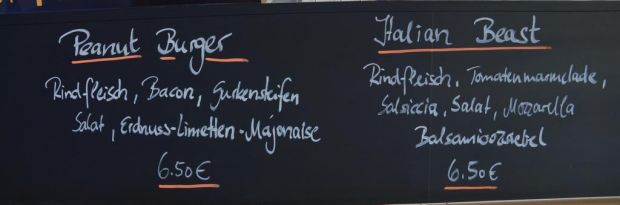 Peanut Burger
Rindfleisch, Bacon, Gurkenstreifen
Salat, Erdnuss-Limetten-Majonaise
6.50€
Italian Beast
Rindfleisch, Tomatenmarmelade,
Salsiccia, Salat, Mozzarella
Balsamicozwiebel
6.50€